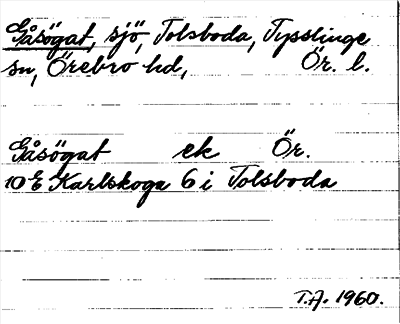 Gåsögat, sjö, Tolsboda, Tysslinge
sn, Örebro hd, Ör. l.
Gåsögat ek Ör.
10 E Karlskoga 6 i Tolsboda
T.A. 1960.